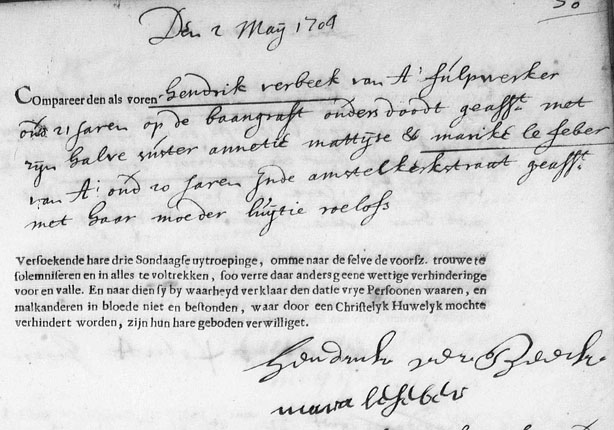 30
Den 2 Maij 1704
Compareerden als vooren Hendrik verbeek van A: sulpwerker
oud 21 Jaren op de baangraft ouders doodt geasst. met
zijn halve suster annetie mattijse & marike le feber
van A: oud 20 Jaren Inde amstelkerkstraat geasst.
met haar moeder luijtie roelofs
Versoekende hare drie Sondaagse uytroepinge, omme naar de selve de voorsz. trouwe te
solemniseren en in alles te voltrekken, soo verre daar anders geene wettige verhinderinge
voor en valle. En naar dien sy by waarheyd verklaarden datse vrye Persoonen waaren, en
malkanderen in bloede niet en bestonden, waar door een Christelyk Huwelyk mochte
verhindert worden, zijn hun hare geboden verwilliget.
Hendrick ver Beeck
maria lefeber